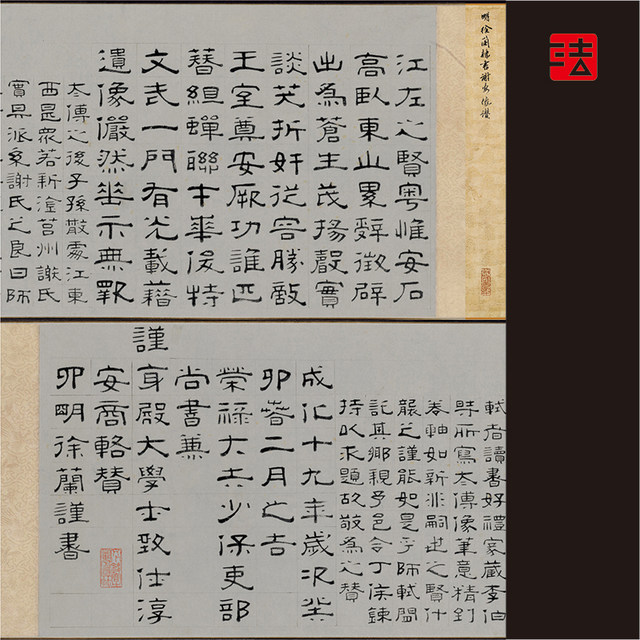 法
明徐蘭隸書謝安像贊
江左之賢粵惟安石
高臥東山累辭徵辟
出為蒼生茂揚聲實
談笑折奸從容勝敵
王室奠安厥功誰匹
簪組蟬聯中華後特
文武一門有光載籍
遺像儼然垂示無斁
太傅之後子孫散處江東
西是眾若新淦莒州謝氏
實其派系謝氏之良曰師
軾者讀書好禮家藏李伯
時所寫太傅像筆意精到
卷軸如新非嗣世之賢什
襲之謹能如是乎師軾間
託其鄉親予邑令丁侯鍊
持以求題故敬為之贊
成化十九年歲次癸
卯春二月之吉
榮祿大夫少保吏部
尚書兼
謹身殿大學士致仕淳
安商輅贊
四明徐蘭謹書